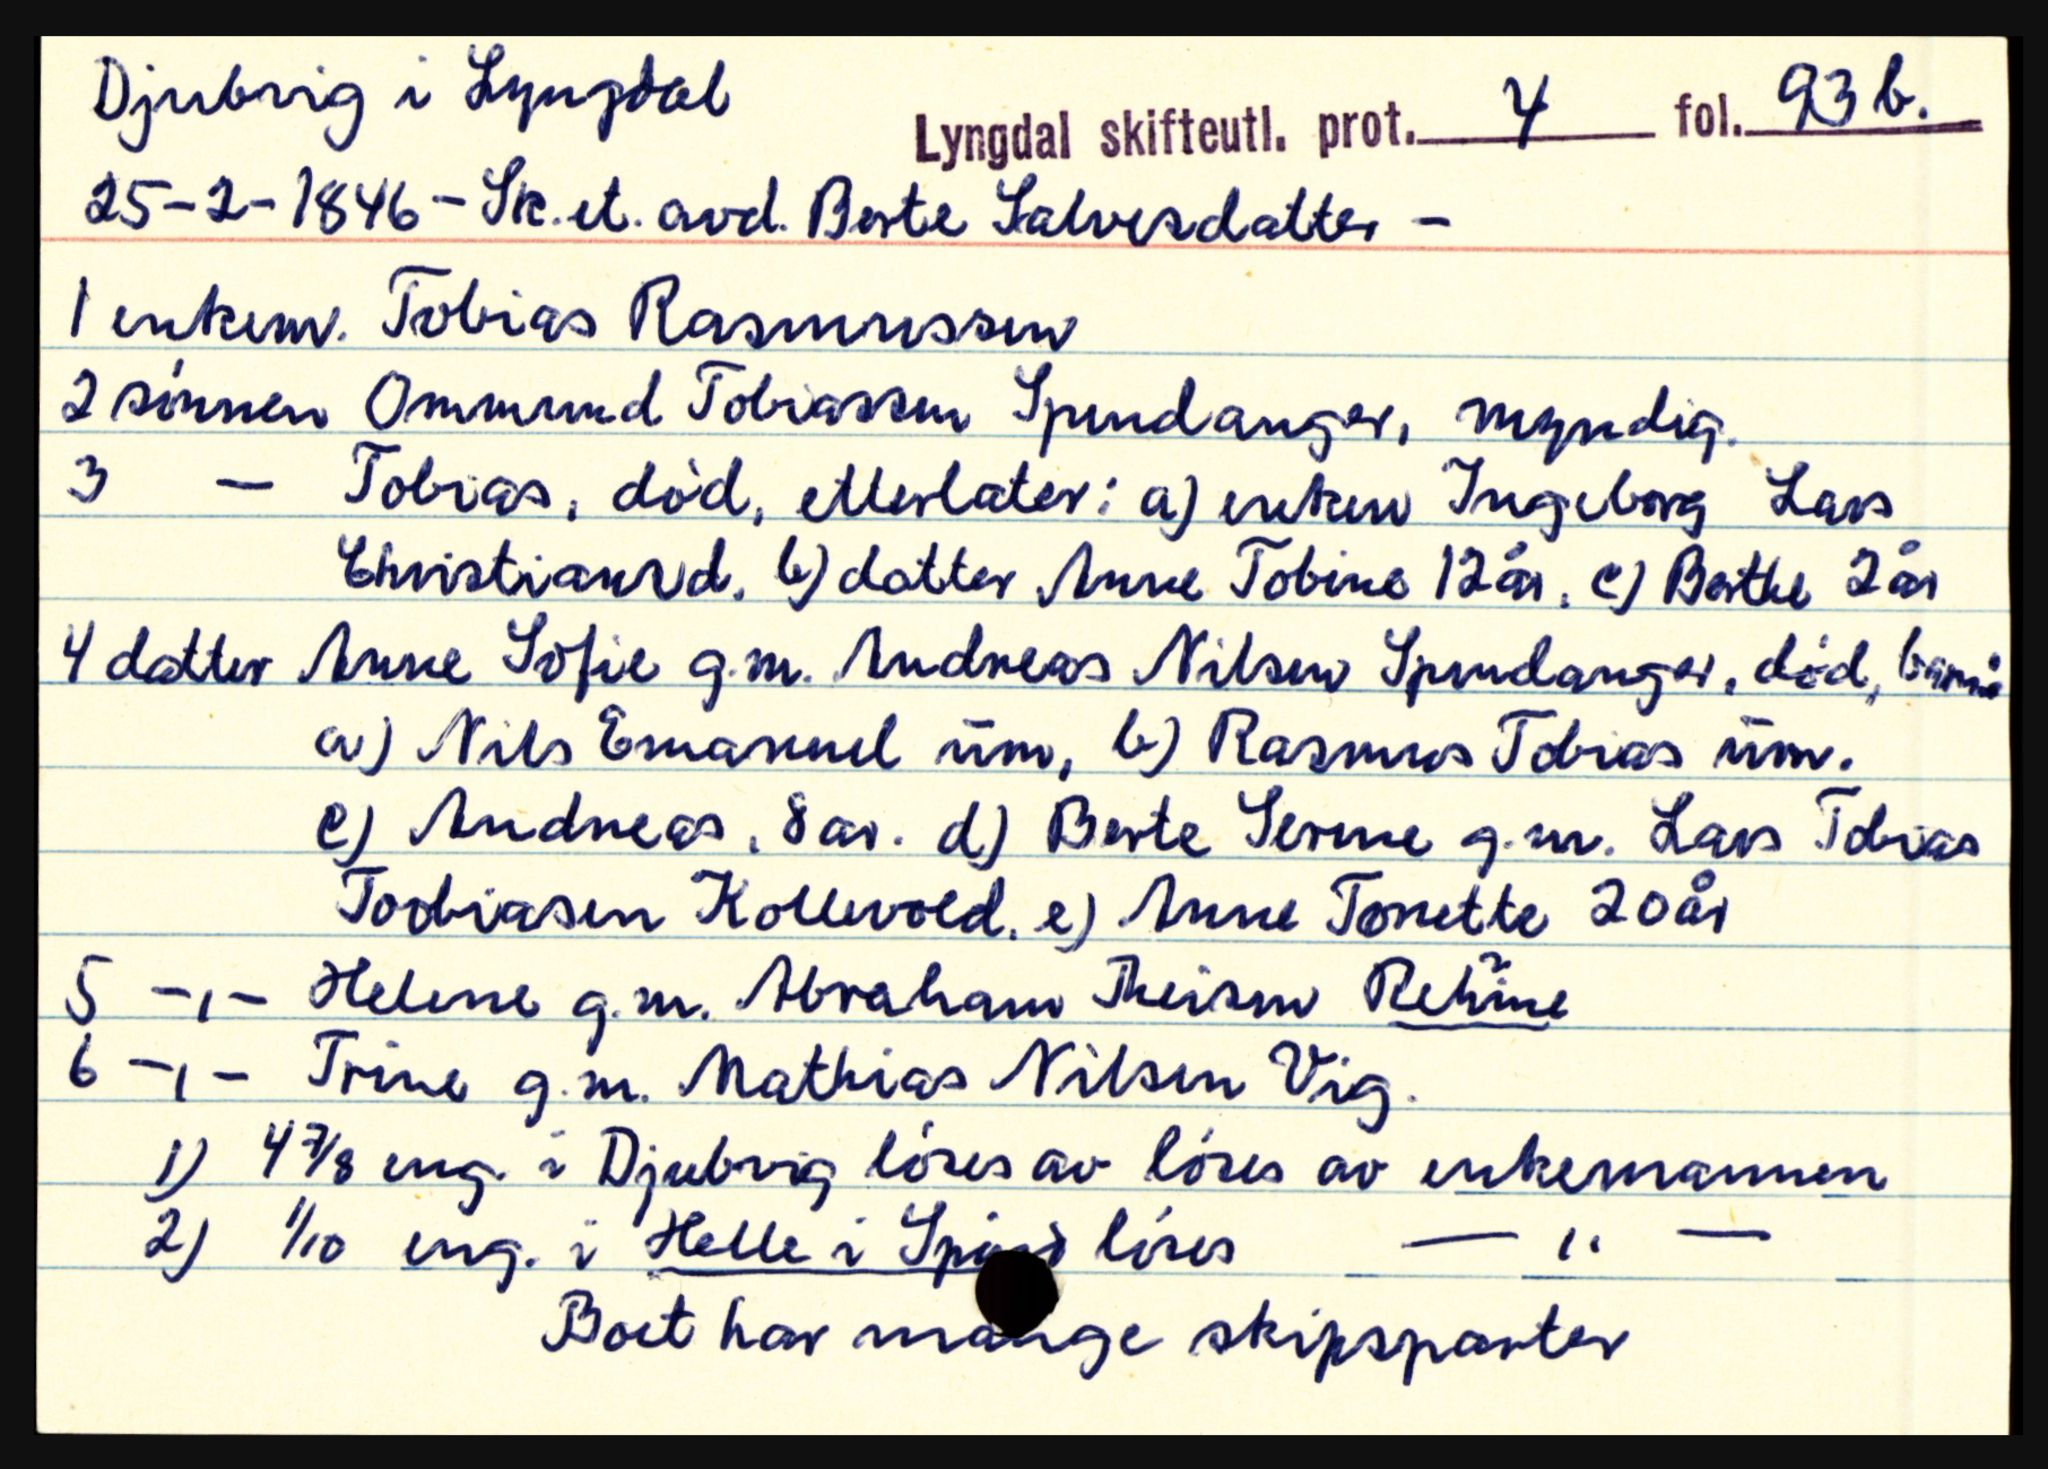 Djubvig i Lyngdal
Lyngdal skifteutl. prot. 4 fol. 93 b.
25-2-1846 - Sk. et. avd. Berte Salvesdatter -
1 enkem. Tobias Rasmussen
2 sönnen Ommund Tobiassen Spindanger, myndig.
3 — Tobias, död, etterlater: a) enken Ingeborg Lars
Christiansd. b) datter Anne Tobine 12 år. c) Berthe 2 år
4 datter Anne Sofie g.m. Andreas Nilsen Spindanger, död,
a) Nils Emanuel um, b) Rasmus Tobias um.
c) Andreas, 8 ar. d) Berte Serine g.m. Lars Tobias
Tobiasen Kollevold. e) Anne Tonette 20 år
5 -,- Helene g.m. Abraham Theisen
6 -,- Trine g.m. Mathias Nilsen Vig.
1) 4 7/8 eng. i Djubvig löses av löses av enkemannen
2) 1/10 eng. i Helle i Spind löses — " —
Boet har mange skipsparter